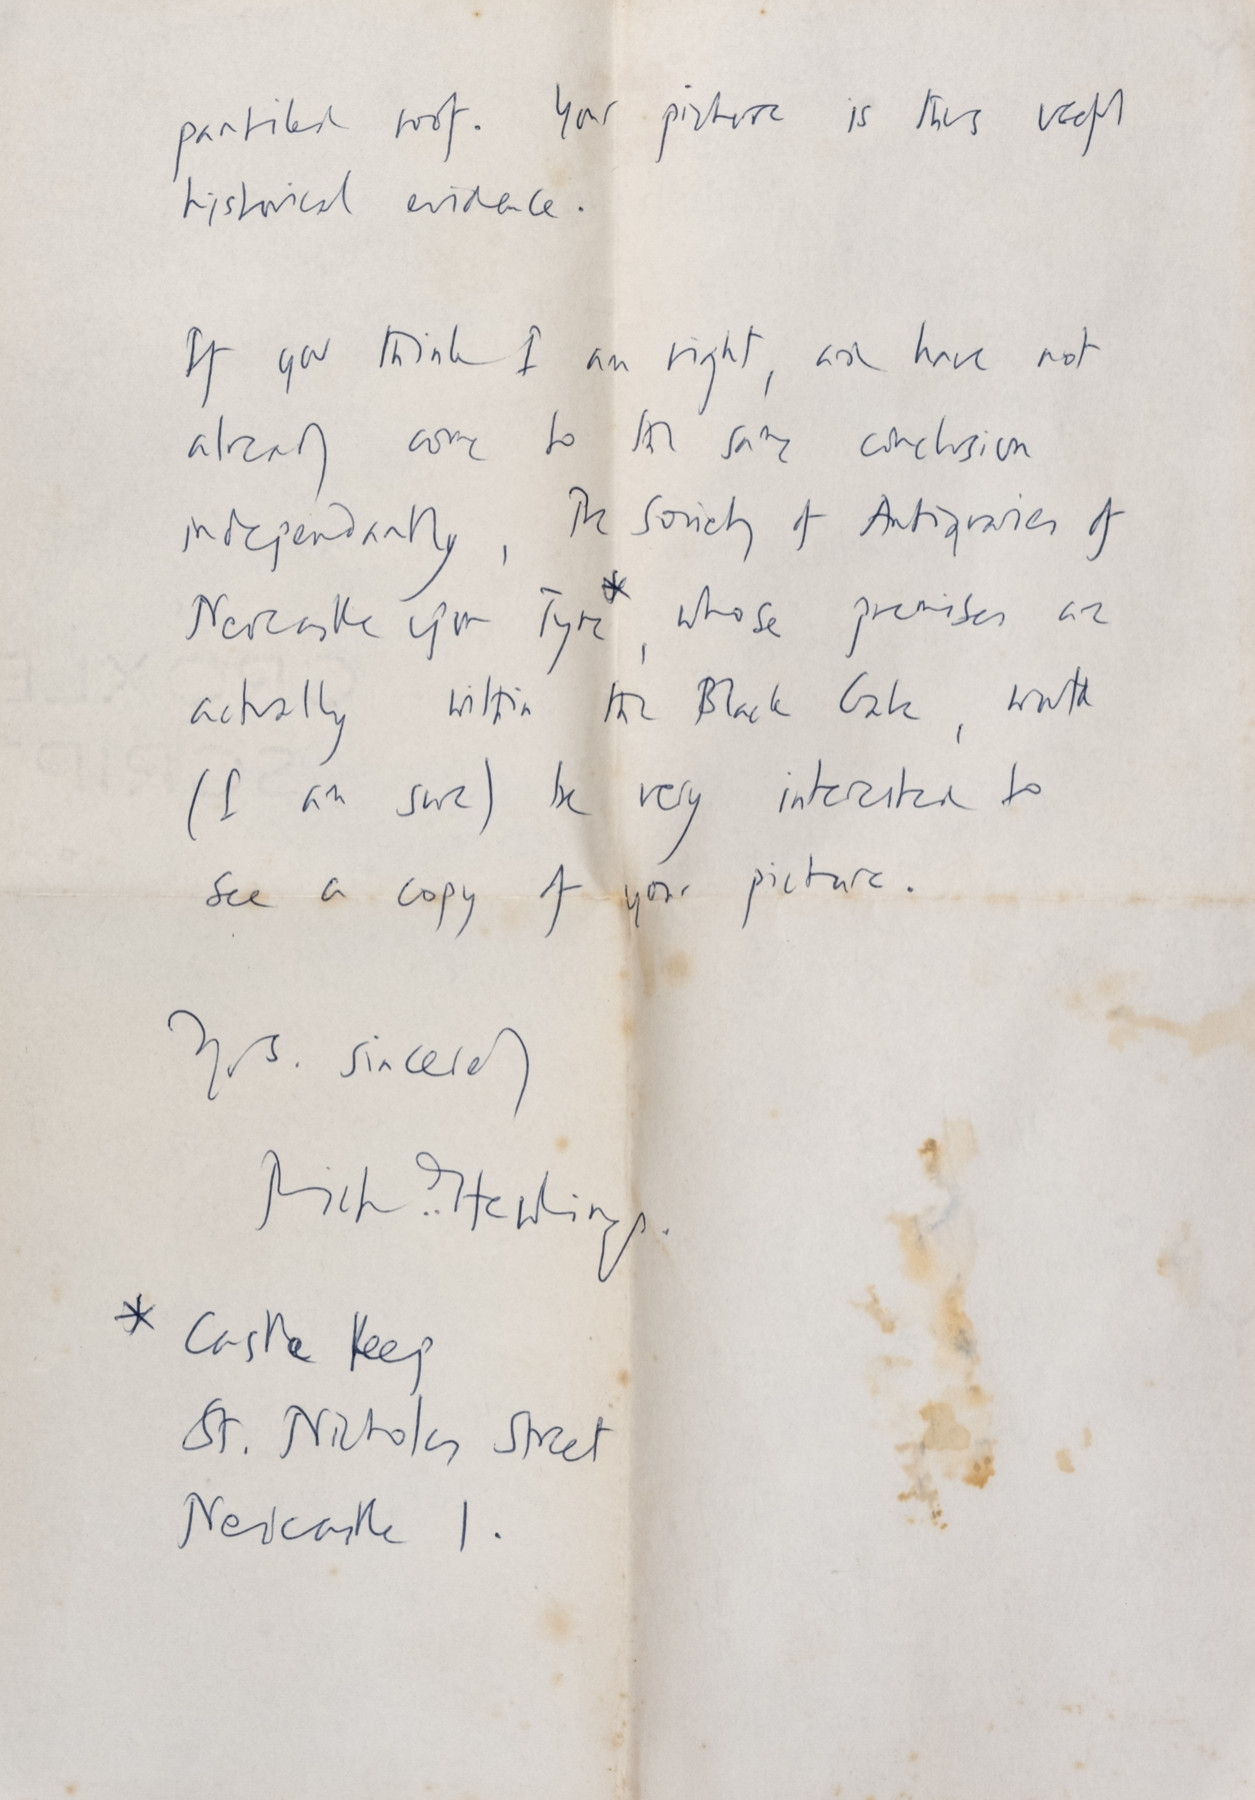 pantiled roof. Your picture is thus useful
historical evidence.
If you think I am right, and have not
already come to the same conclusion
independantly, The Society of Antiquaries of
Newcastle upon Tyne*, whose premises are
actually within the Black Gate, would
(I am sure) be very interested to
see a copy of your picture.
Yrs. sincerely
Rich^d. Hewlings.
* Castle Keep
St. Nicholas Street
Newcastle 1.